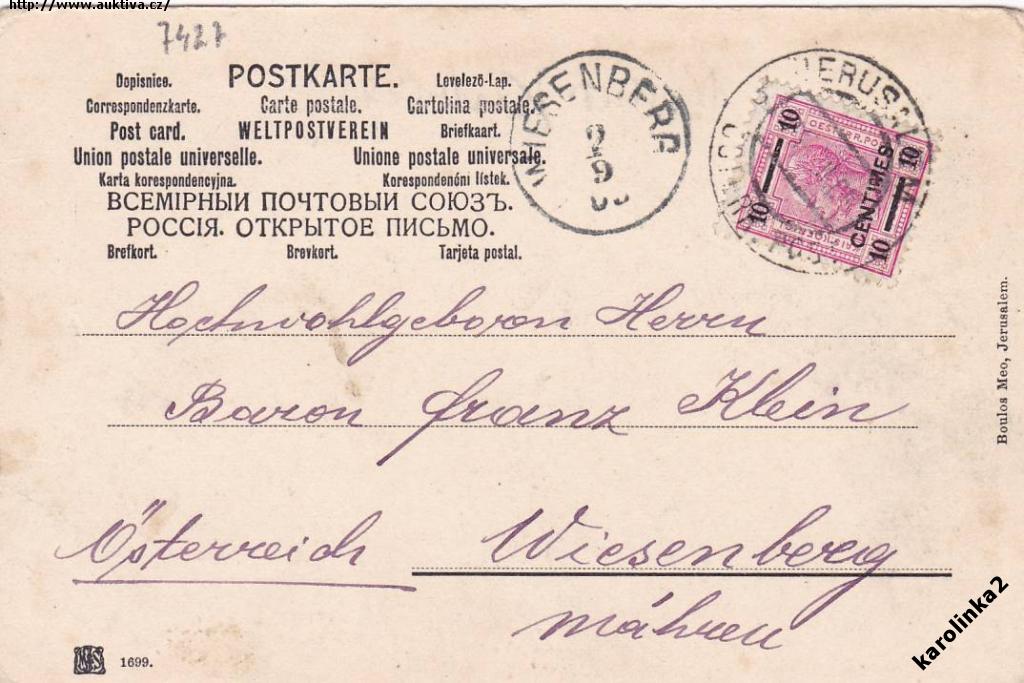 http://www.auktiva.cz/
7427
Dopisnice. POSTKARTE. Levelező-Lap.
Correspondenzkarte. Carte postale. Cartolina postale.
Post card. WELTPOSTVEREIN Briefkaart.
Union postale universelle. Unione postale universale.
Karta korespondencyjna. Korespondenóni lístek.
ВСЕМІРНЫИ ПОЧТОВЫЙ СОЮЗЪ.
РОССІЯ. ОТКРЫТОЕ ПИСЬМО.
Brefkort. Brevkort. Tarjeta postal.
WIESENBERG
2
9
JERUSA
10 10
OESTERR. POST
CENTIMES
10 10
Hochwohlgeboren Herrn
Baron Franz Klein
Österreich Wiesenberg
Mähren
Boulos Meo, Jerusalem.
1699.
karolinka2